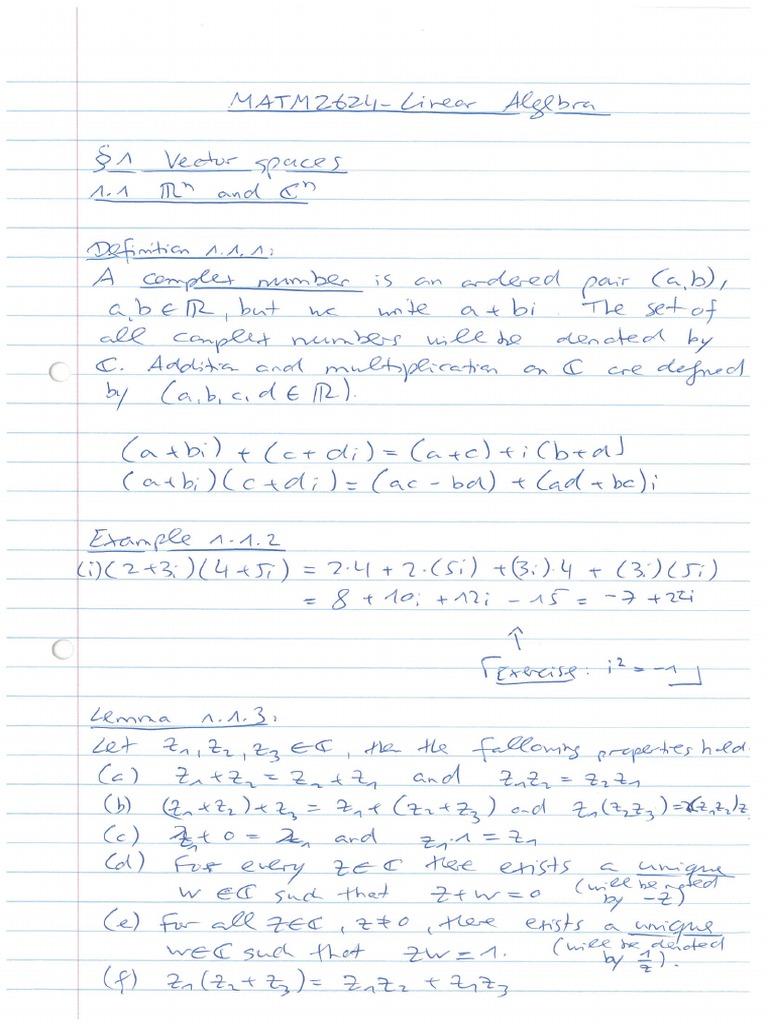 MATM2624-Linear Algebra
§1 Vector spaces
1.1 ℝⁿ and ℂⁿ
Definition 1.1.1:
A complex number is an ordered pair (a,b),
a,b ∈ ℝ, but we write a + bi. The set of
all complex numbers will be denoted by
ℂ. Addition and multiplication on ℂ are defined
by (a,b,c,d ∈ ℝ).
(a+bi) + (c+di) = (a+c) + i(b+d)
(a+bi)(c+di) = (ac - bd) + (ad + bc)i
Example 1.1.2
(i) (2+3i)(4+5i) = 2·4 + 2·(5i) + (3i)·4 + (3i)(5i)
= 8 + 10i + 12i - 15 = -7 + 22i
↑
⌈Exercise: i² = -1⌋
Lemma 1.1.3:
Let z₁, z₂, z₃ ∈ ℂ, then the following properties hold.
(a) z₁ + z₂ = z₂ + z₁ and z₁z₂ = z₂z₁
(b) (z₁ + z₂) + z₃ = z₁ + (z₂ + z₃) and z₁(z₂z₃) = (z₁z₂)z
(c) z₁ + 0 = z₁ and z₁·1 = z₁
(d) For every z ∈ ℂ there exists a unique
w ∈ ℂ such that z + w = 0 (will be noted
by -z)
(e) For all z ∈ ℂ, z ≠ 0, there exists a unique
w ∈ ℂ such that zw = 1. (will be denoted
by 1/z).
(f) z₁(z₂ + z₃) = z₁z₂ + z₁z₃